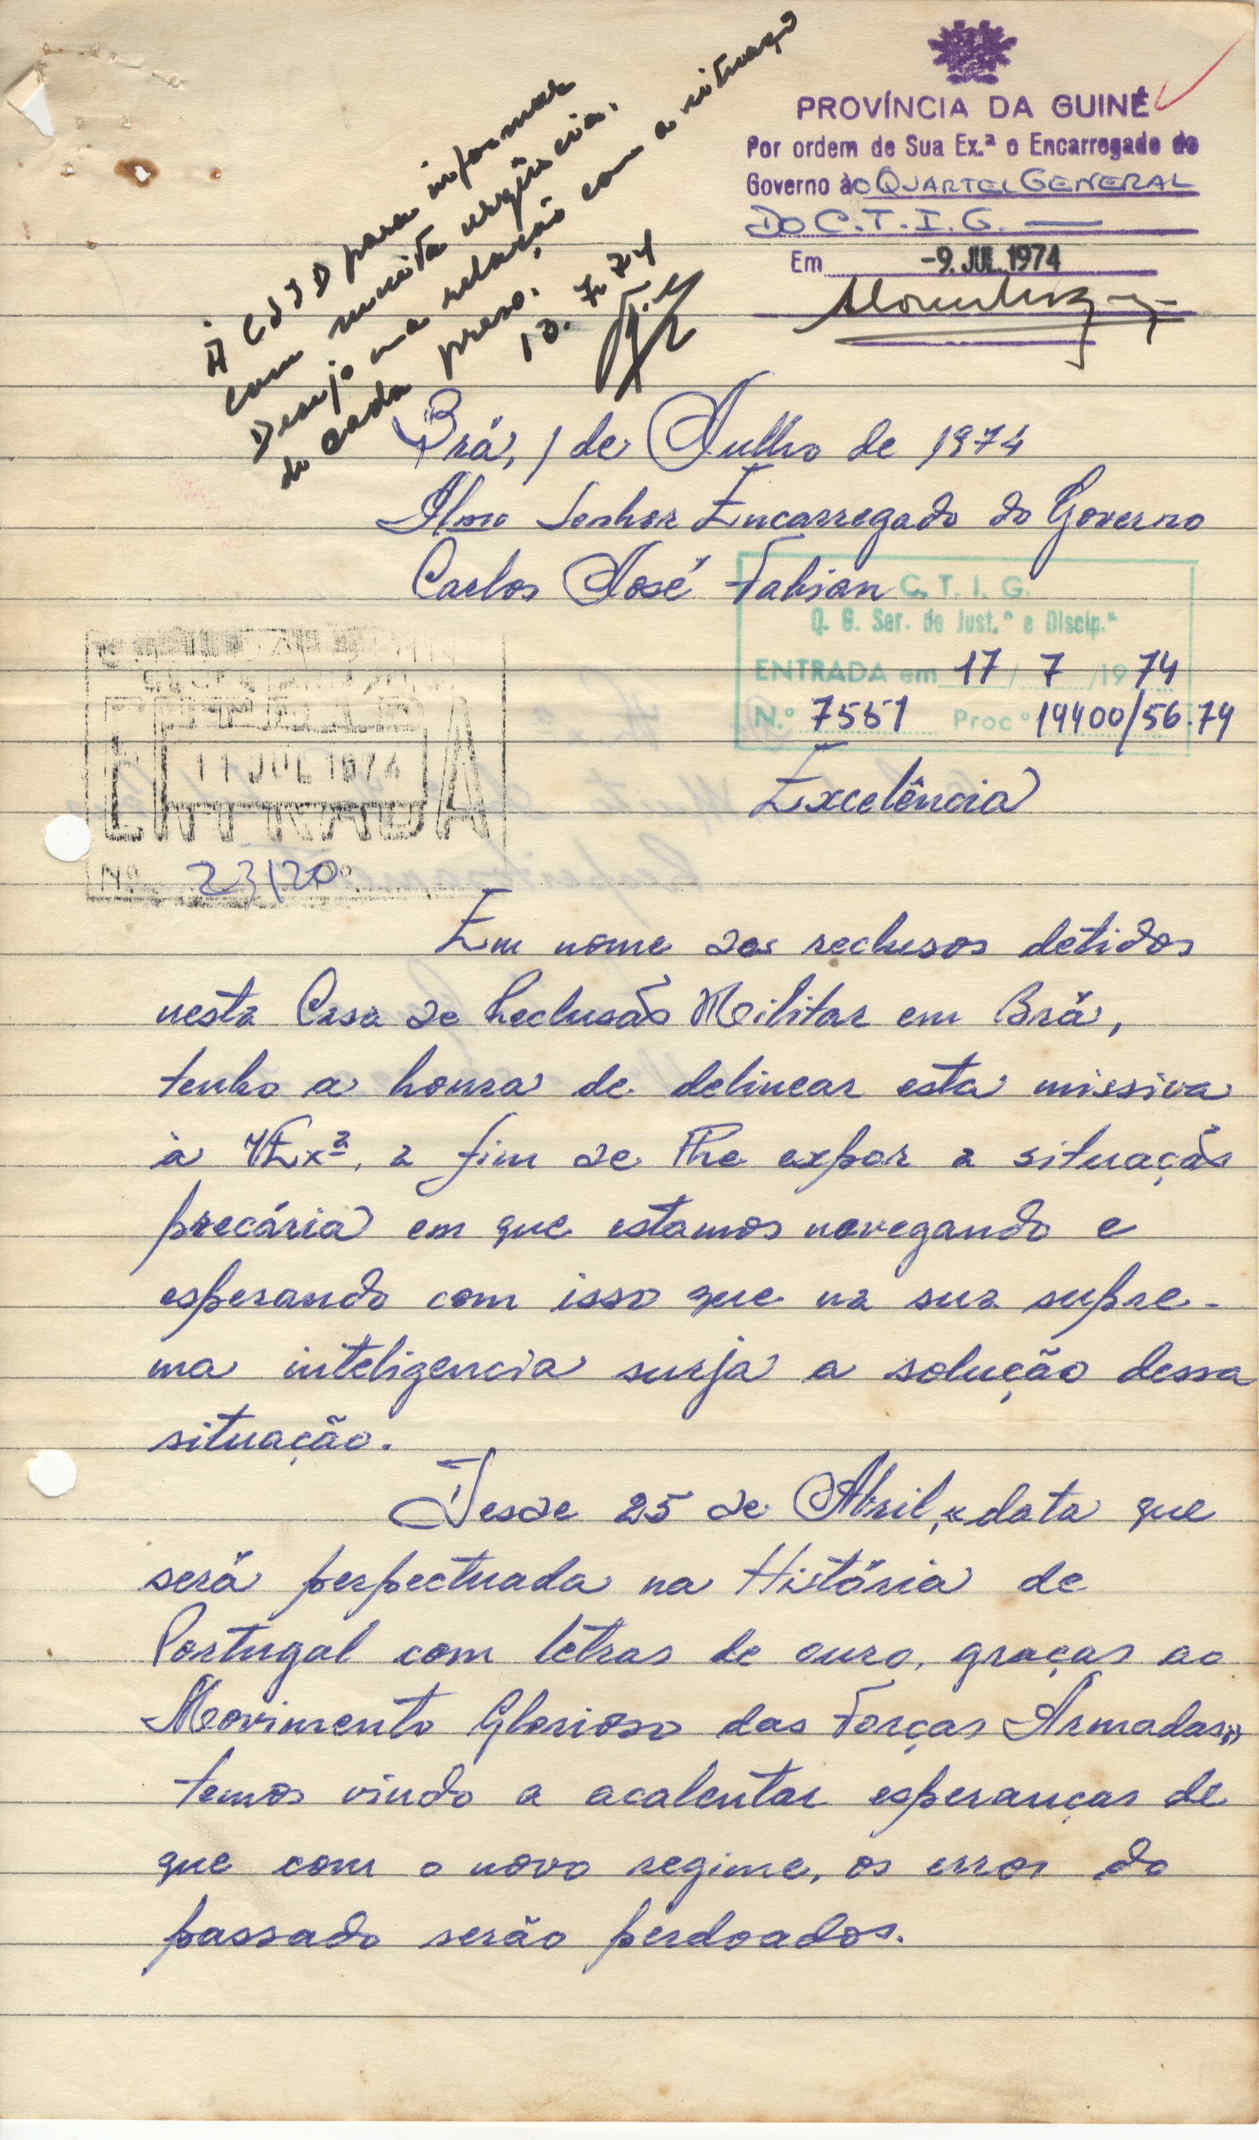 À CSJD para informar
com muita urgência.
Desejo uma relação com a situação
de cada preso.
10.7.74
PROVÍNCIA DA GUINÉ
Por ordem de Sua Ex.ª o Encarregado do
Governo ào QUARTEL GENERAL
DO C.T.I.G.
Em -9. JUL. 1974
Brá, 1 de Julho de 1974
Ilmo Senhor Encarregado do Governo
Carlos José Fabian
C. T. I. G.
Q. G. Ser. de Just.ª e Discip.ª
ENTRADA em 17 / 7 /19 74
N.º 7551 Proc.º 19400/56.74
ENTRADA
11 JUL 1974
Nº 23120
Excelência
Em nome dos reclusos detidos
nesta Casa de Reclusão Militar em Brá,
tenho a honra de delinear esta missiva
à VExª, a fim de lhe expor a situação
precária em que estamos navegando e
esperando com isso que na sua supre-
ma inteligencia surja a solução dessa
situação.
Desde 25 de Abril, «data que
será perpectuada na História de
Portugal com letras de ouro, graças ao
Movimento Glorioso das Forças Armadas»
temos vindo a acalentar esperanças de
que com o novo regime, os erros do
passado serão perdoados.